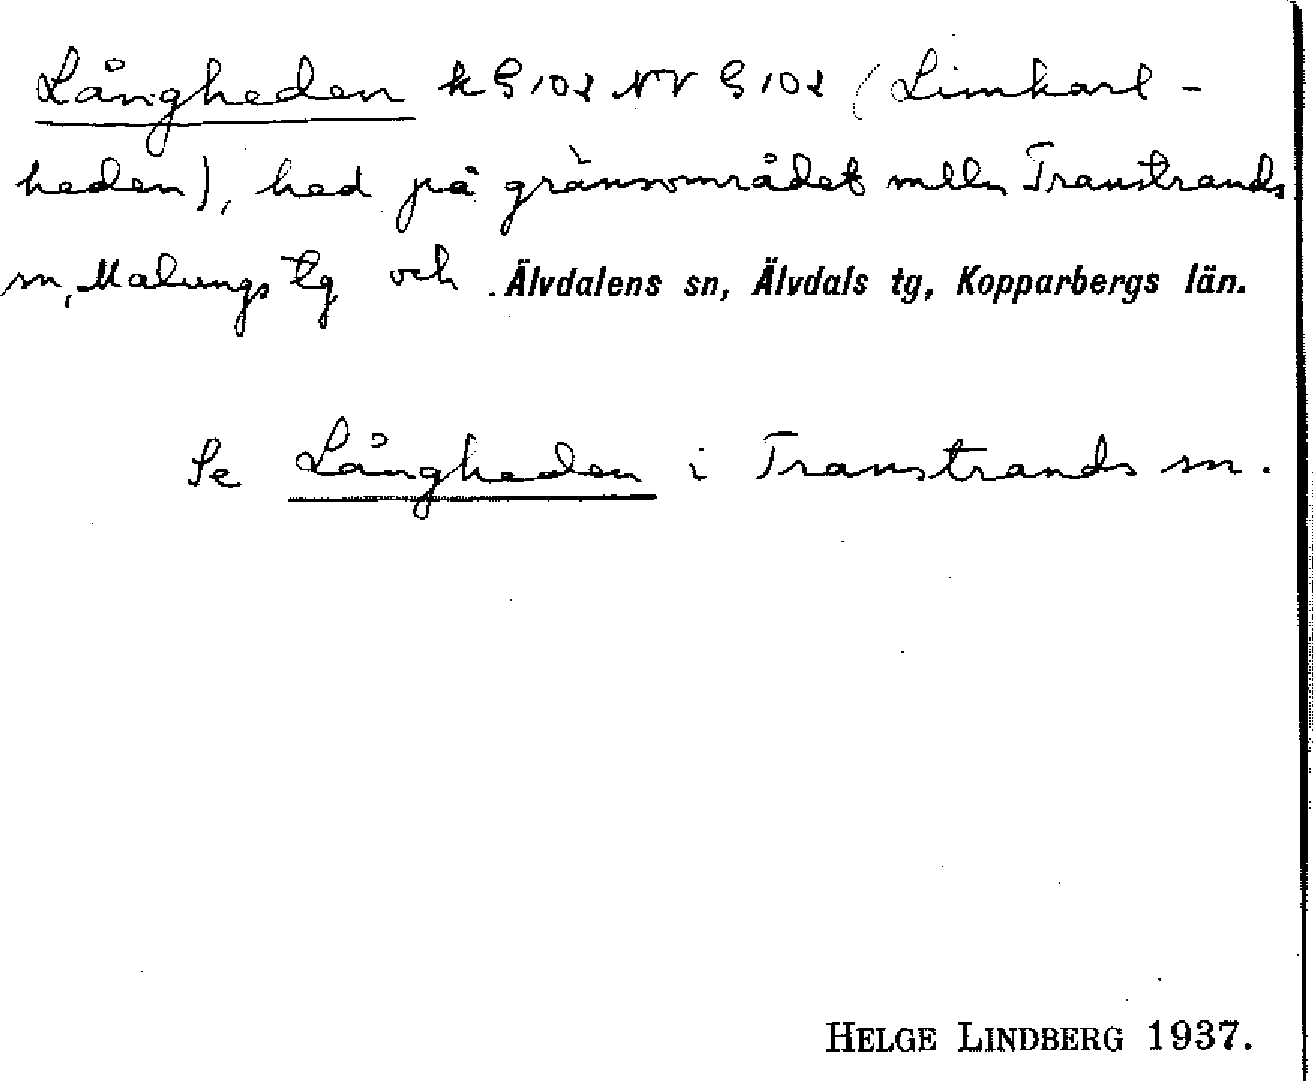 Långheden k G 102 NV G 102 (Limkarl-
heden), hed på gränsområdet mlln Transtrands
sn, Malungs tg och Älvdalens sn, Älvdals tg, Kopparbergs län.
Se Långheden i Transtrands sn.
HELGE LINDBERG 1937.